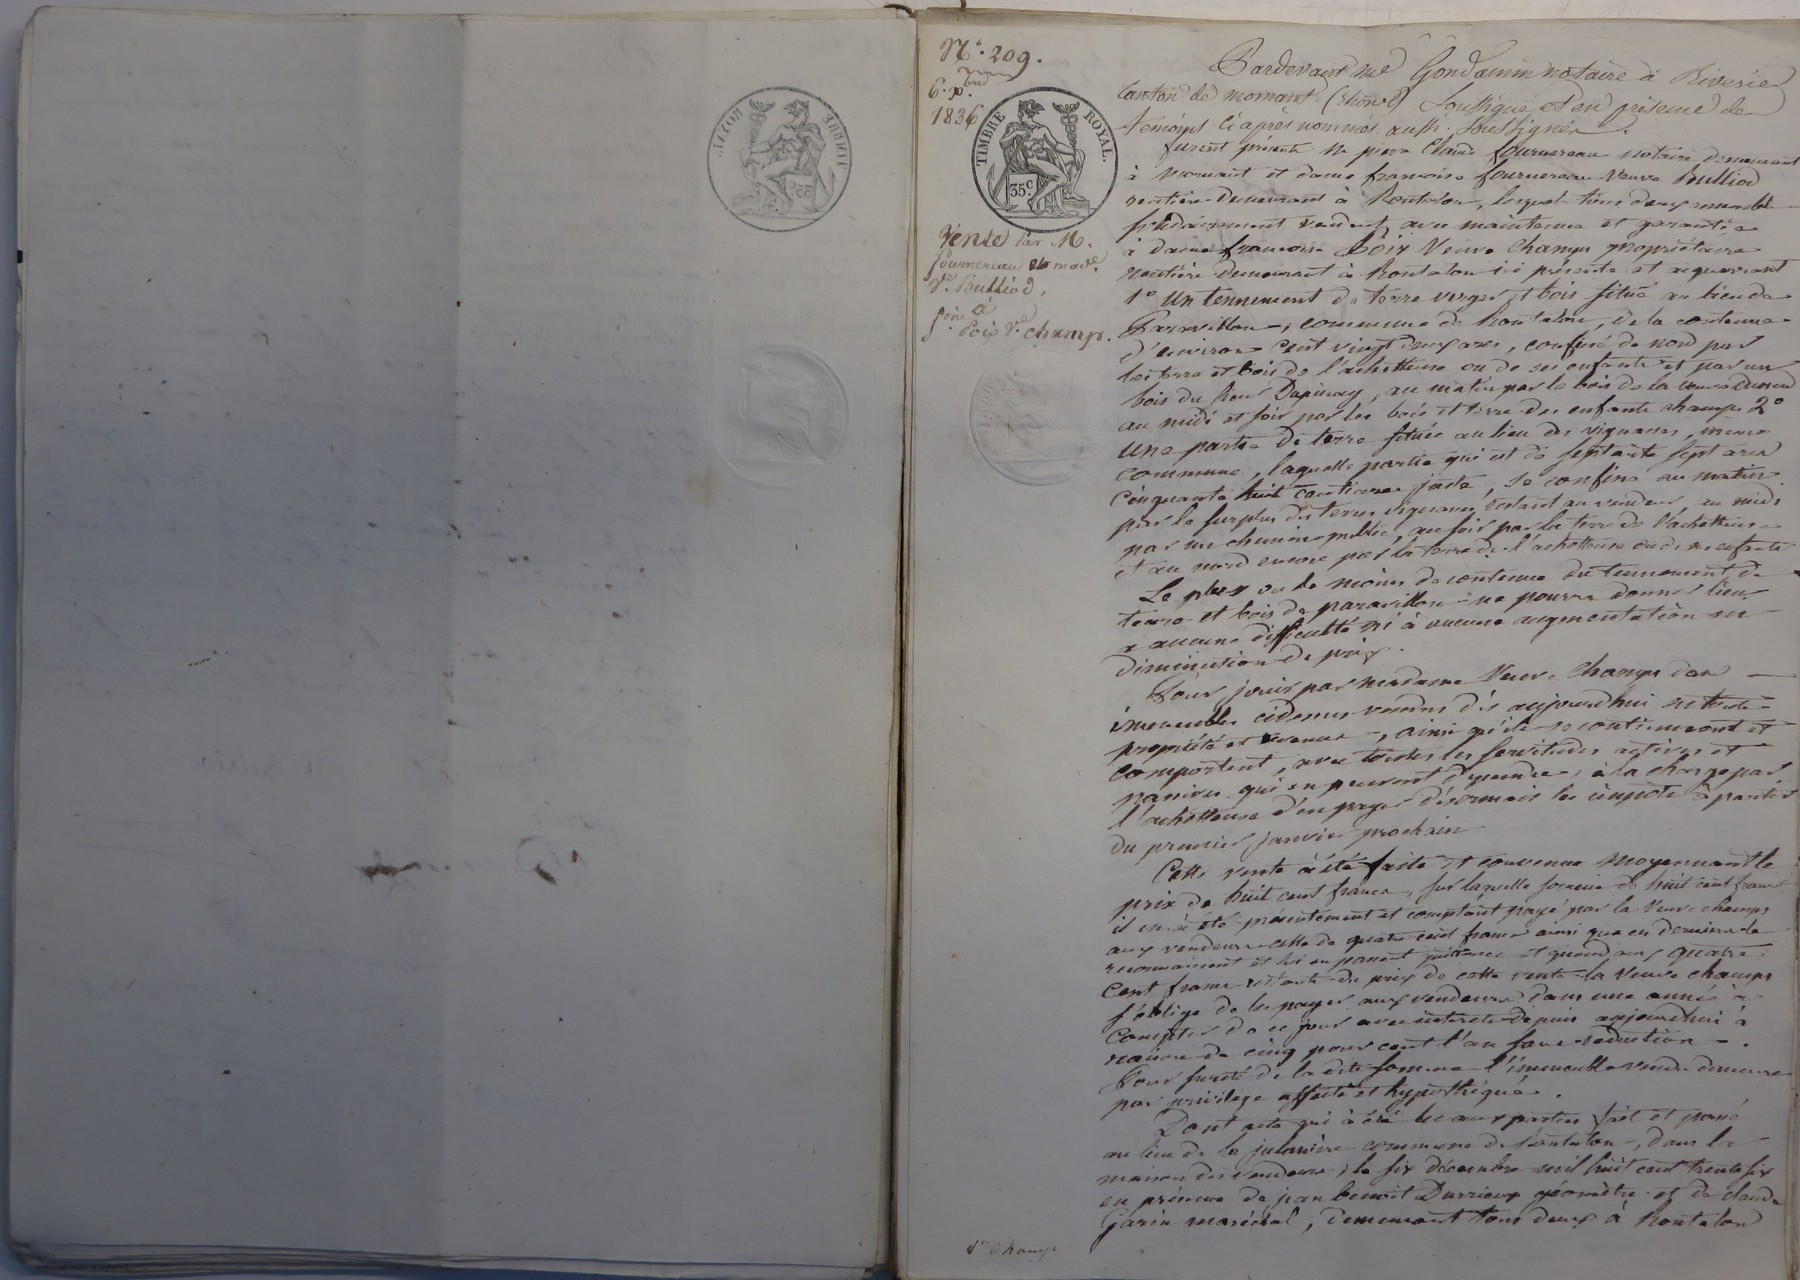 N°. 209.
6. Xbre
1836
TIMBRE ROYAL.
35c
Vente par M.
fournereau et made.
Ve. Bulliod,
à
Poix Ve. champs.
Pardevant me Gondamin notaire à Riverie
canton de mornant (rhône) soussigné et en présence de
témoins ci après nommés aussi soussignés.
furent présents Me pierre Claude fournereau notaire demeurant
à mornant et dame françoise fournereau veuve Bulliod
rentière demeurant à Rontalon, lesquels tous deux ensemble
solidairement vendent avec maintenue et garantie
à dame françoise Poix Veuve Champs propriétaire
rentière demeurant à Rontalon ici présente et acquerrant
1° un tennement de terre verger et bois situé au lieu de
Paravillon, commune de Rontalon, de la contenue
d'environ cent vingt deux ares, confiné de nord par
les terre et bois de l'achetteuse ou de ses enfants et par un
bois du sieur Dapinay, au matin par le bois de la veuve
au midi et soir par les bois et terre des enfants champs 2°
une partie de terre située au lieu des vignasses, même
commune, laquelle partie qui est de septante sept ares
cinquante huit centiares juste, se confine au matin
par le surplus des terres vignasses restant au vendeur, au midi
par un chemin public, au soir par la terre de l'achetteuse
et au nord encore par la terre de l'achetteuse ou de ses enfants
Le plus ou le moins de contenue du tennement de
terre et bois de paravillon ne pourra donner lieu
a aucune difficulté ni à aucune augmentation ni
diminution de prix.
Pour jouir par madame Veuve Champs des
immeubles cidessus vendus dès aujourdhui en toute
propriété et revenus, ainsi qu'ils se contiennent et
comportent, avec toutes les servitudes actives et
passives qui en peuvent dépendre, à la charge par
l'achetteuse d'en payer désormais les impôts à partir
du premier janvier prochain
Cette vente à été faite et convenue moyennant le
prix de huit cent francs, sur laquelle somme de huit cent francs
il en à été présentement et comptant payé par la Veuve champs
aux vendeurs celle de quatre cent francs ainsi que ces derniers le
reconnaissent et lui en passent quittance et quand aux quatre
cent francs restants du prix de cette vente la Veuve champs
s'oblige de les payer aux vendeurs dans une année à
compter de ce jour avec intérêts depuis aujourdhui à
raison de cinq pour cent l'an sans réduction.
Pour sureté de la dite somme l'immeuble vendu demeure
par privilège affecté et hypothéqué.
Dont acte qui à été lu aux parties fait et passé
au lieu de la commune de Rontalon, dans la
maison des vendeurs, le six décembre mil huit cent trente six
en présence de jean benoit Durrieux géomètre et de claude
Garin maréchal, demeurant tous deux à Rontalon
Ve Champs